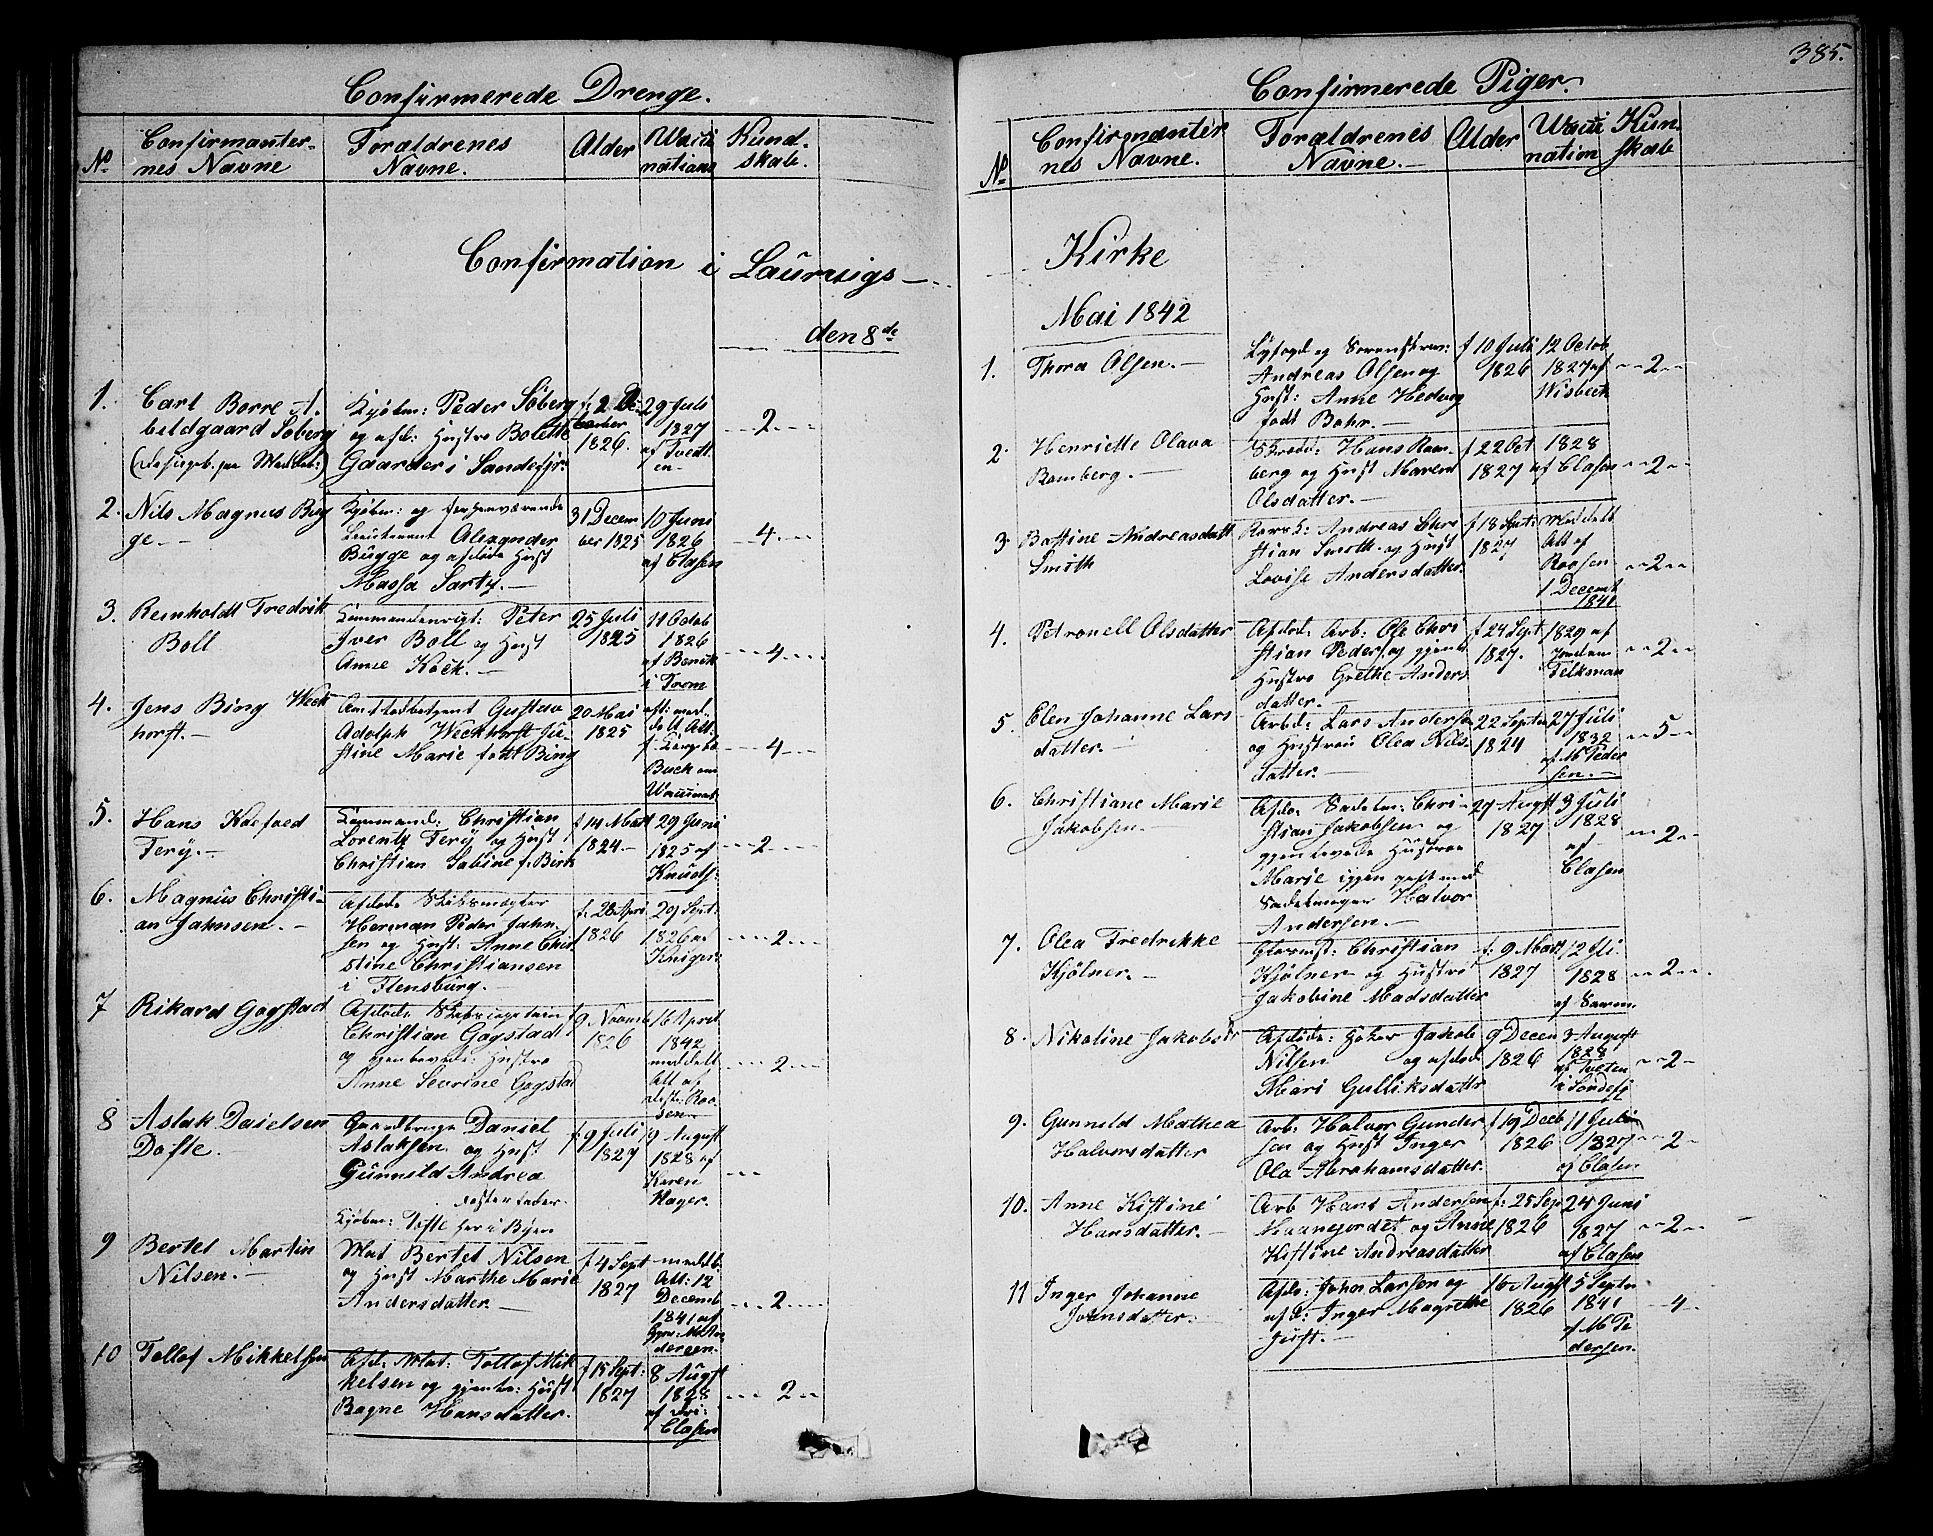 385.
Confirmerede Drenge.
No
Confirmanter-
nes Navne
Forældrenes
Navne.
Alder
nations
Kund-
skab.
Confirmation i Laurvigs
den 8de
1.
Carl Borre A-
bildgaard Söberg
Kjöbm: Peder Söberg
og afd: Hustro Bolette
Gaarder i Sandefj:
f. 2 De
cember
1826.
29 Juli
1827
af Tvedt
en
2
2.
Nils Magnus Bug
ge.
Kjöbm: og
Lieutenant Alexander
Bugge og afdöde Hust
Massa Sartz.
31 Decem
ber 1825
10 Juni
1826
af Clasen
4
3.
Reinholdt Fredrik
Boll
Peter
Iver Boll og Hust
Anne Kock.
25 Juli
1825
11 Octob
1826
i Trom
4
4.
Jens Bing Weck
horst.
Gustav
Adolph Weckhorst Ju-
stine Marie född Bing
20 Mai
1825
4
5.
Hans Koefoed
Ferÿ.
Christian
Lorentz Ferÿ og Hust
Christian Sabine f. Birk
f 14 Mart
1824.
29 Juni
1825 af
Knuds:
2
6.
Magnus Christi-
an Jahnsen.
Afdöde
Herman Peder Jahn-
sen og Hust: Anne Chri
stine Christiansen
i Flensburg.
f. 28 Apri
1826
29 Sept:
1826 af
2
7
Rikard Gogstad
Afdöde
Christian Gogstad
og gjenlevende Hustro
Anne Severine Gogstad
9 Novemb
1826
16 April
1842
meddelt
Att af
2
8
Aslak Danielsen
Dofte.
Gaardbruger Daniel
Aslaksen og Hust
Gunnild Andrea
Kjöbm: Tofte her i Byen
f. 9 Juli
1827
9 August
1828 af
9
Bertel Martin
Nilsen.
Mat Bertel Nilsen
og Hust Marthe Marie
Andersdatter
f 4 Sept
1827
meddt.
Att: 12
Decemb
1841 af
2
10
Tollof Mikkelsen
Afd: Mat: Tollof Mik
kelsen og gjenle: Hust
Bagne Hansdatter.
f 15 Sept:
1827
8 Augst
1828
Clasen
2
Confirmerede Piger.
No
Confirmanter
nes Navne.
Forældrenes
Navne.
Alder
nation
Kun-
skab
Kirke
Mai 1842
1.
Thora Olsen.
Byfogd og Sorenskriv:
Andreas Olsen og
Hust: Anne Hedvig
född Bohr.
f 10 Juli
1826
12 Octob
1827 af
Nisbeth
2
2.
Henriette Olava
Romberg.
Skrædd: Hans Rom-
berg og Hust Maren
Olsdatter.
f 22 Oct
1827
1828
af Clasen
2
3
Battine Andreasdatt
Smith
Andreas Chri
stian Smith og Hust
Lovise Andersdatter
f 18 Sept:
1827
meddelt
Att af
Roosen
1 Decemb
1841
2
4.
Petronell Olsdatter
Afdöd: Arb: Ole Chri
stian Peders og gjenl:
Hustro Grethe Anders
datter.
f 24 Sept
1827.
1829 af
Telkman
2
5.
Elen Johanne Lars
datter.
Arbd: Lars Anderse
og Hustrou Olea Nils
datter.
22 Septm
1824
27 Juli
1832
af M Peder
sen.
5
6.
Christiane Marie
Jakobsen.
Afdö. Sadelm: Chri-
stian Jakobsen og
gjenlevende Hustroe
Marie igjen gift med
Sadelmager Halvor
Andersen.
29 Augst
1827
3 Juli
1828
af
Clasen
2
7.
Olea Fredrikke
Kjölner.
Glasmst: Christian
Kjölner og Hustro
Jakobine Madsdatter
f. 9 Mart
1827
1828
2
8.
Nikoline Jakobsdr
Afdöde: Jakob
Nilsen og afdöde
Mari Gulliksdattr
9 Decem
1826
3 August
1828
af Tveten
i Sandefj
2
9.
Gunnild Mathea
Halvorsdatter
Arb. Halvor Gunder
sen og Hust Inger
Ola Abrahamsdatter.
f 19 Decb
1826
11 Julii
1827
af Clasen
2
10.
Anne Kistine
Hansdatter.
Arb Hans Andersen
Maanejordet og Anne
Kistine Andreasdatter
f: 25 Sep
1826
24 Juni
1827
af Clasen
2
11
Inger Johanne
Johnsdatter.
Afdö: John Larsen og
afd: Inger Magrethe
16 Augst
1826
5 Septm
1841
af M Pe
dersen.
4